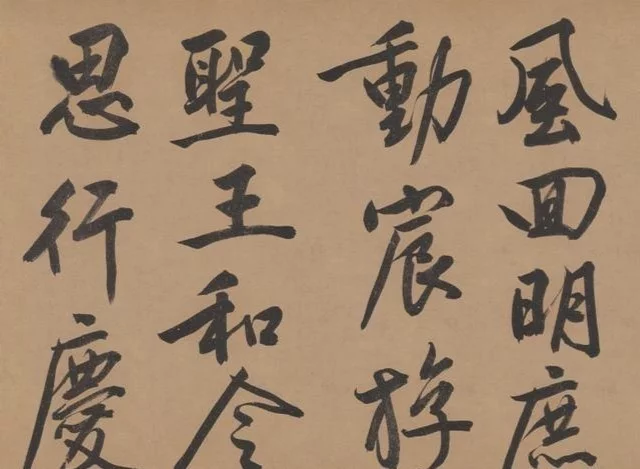 風回明庶
動宸游
聖王和令
思行慶